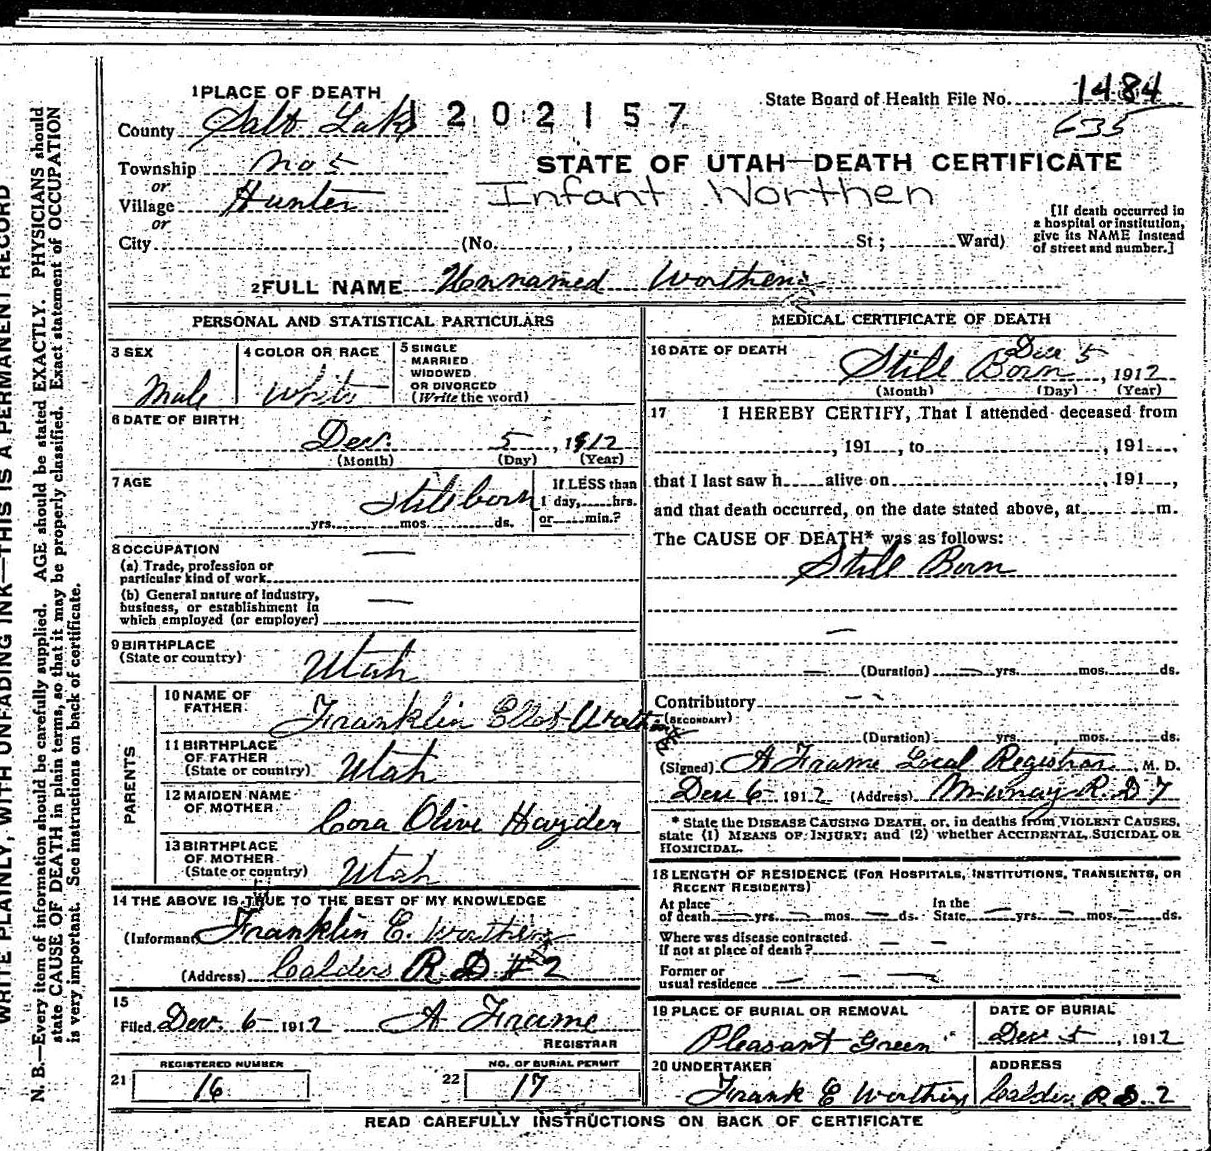 1 PLACE OF DEATH
1202157
State Board of Health File No. 1484
635
County Salt Lake
STATE OF UTAH—DEATH CERTIFICATE
Township No 5
or
Infant Worthen
Village Hunter
or
City (No. , St; Ward)
[If death occurred in
a hospital or institution,
give its NAME instead
of street and number.]
2 FULL NAME Unnamed Worthen
PERSONAL AND STATISTICAL PARTICULARS
3 SEX
Male
4 COLOR OR RACE
White
5 SINGLE
MARRIED
WIDOWED
OR DIVORCED
(Write the word)
6 DATE OF BIRTH
Dec. 5, 1912
(Month) (Day) (Year)
7 AGE
Stillborn
yrs. mos. ds.
If LESS than
1 day, hrs.
or min.?
8 OCCUPATION —
(a) Trade, profession or
particular kind of work
(b) General nature of Industry,
business, or establishment in —
which employed (or employer)
9 BIRTHPLACE
(State or country) Utah
PARENTS
10 NAME OF
FATHER Franklin Worthen
11 BIRTHPLACE
OF FATHER
(State or country) Utah
12 MAIDEN NAME
OF MOTHER Cora Olive Hayden
13 BIRTHPLACE
OF MOTHER
(State or country) Utah
14 THE ABOVE IS TRUE TO THE BEST OF MY KNOWLEDGE
(Informant Franklin E. Worthen
(Address) Calders R D #2
15
Filed Dec. 6 1912 A Frame
REGISTRAR
REGISTERED NUMBER
21 16
NO. OF BURIAL PERMIT
22 17
MEDICAL CERTIFICATE OF DEATH
16 DATE OF DEATH
Still Born Dec 5, 1912
(Month) (Day) (Year)
17 I HEREBY CERTIFY, That I attended deceased from
, 191 , to , 191 ,
that I last saw h alive on , 191 ,
and that death occurred, on the date stated above, at m.
The CAUSE OF DEATH* was as follows:
Still Born
—
— (Duration) — yrs. mos. ds.
Contributory — -
(SECONDARY)
(Duration) yrs. mos. ds.
(Signed) A Frame Local Registrar M. D.
Dec 6 1912 (Address) Murray R. D 7
* State the DISEASE CAUSING DEATH, or, in deaths from VIOLENT CAUSES,
state (1) MEANS OF INJURY; and (2) whether ACCIDENTAL, SUICIDAL OR
HOMICIDAL.
18 LENGTH OF RESIDENCE (FOR HOSPITALS, INSTITUTIONS, TRANSIENTS, OR
RECENT RESIDENTS)
At place In the
of death — yrs. — mos. — ds. State — yrs. — mos. — ds.
Where was disease contracted
If not at place of death? — —
Former or
usual residence — — —
19 PLACE OF BURIAL OR REMOVAL
Pleasant Green
DATE OF BURIAL
Dec 5, 1912
20 UNDERTAKER
Frank E Worthen
ADDRESS
Calders R D. 2
READ CAREFULLY INSTRUCTIONS ON BACK OF CERTIFICATE
WRITE PLAINLY, WITH UNFADING INK—THIS IS A PERMANENT RECORD
N. B.—Every item of information should be carefully supplied. AGE should be stated EXACTLY. PHYSICIANS should
state CAUSE OF DEATH in plain terms, so that it may be properly classified. Exact statement of OCCUPATION
is very important. See instructions on back of certificate.